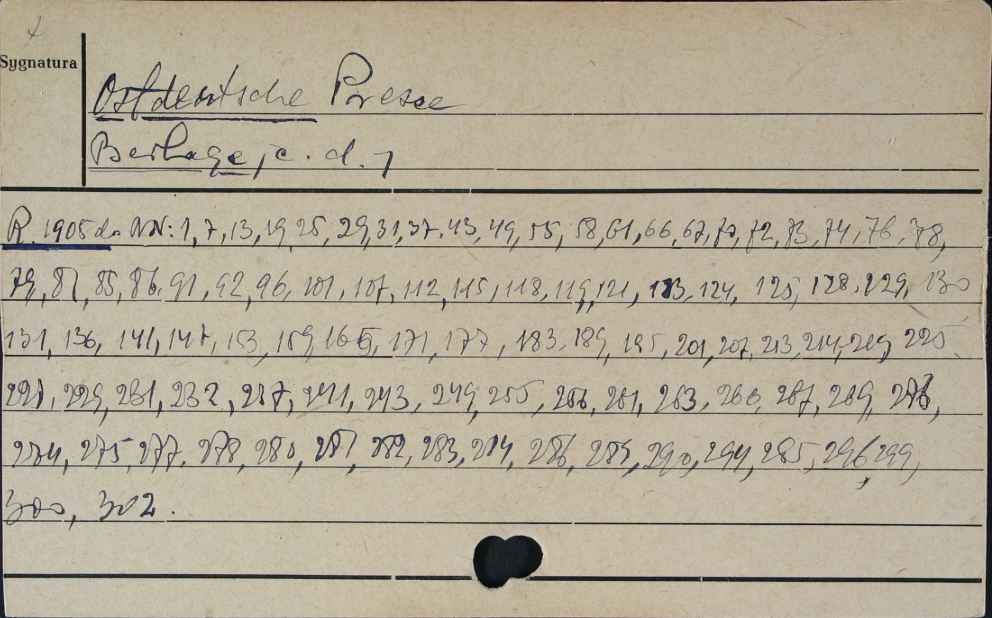 Sygnatura
Ostdeutsche Presse
Beilage, c. d. 1
R. 1905 do NN: 1, 7, 13, 19, 25, 29, 31, 37, 43, 49, 55, 58, 61, 66, 67, 72, 73, 74, 76, 78,
79, 81, 85, 86, 91, 92, 96, 101, 107, 112, 115, 118, 119, 121, 123, 124, 125, 128, 129, 130
131, 136, 141, 147, 153, 159, 165, 171, 177, 183, 189, 195, 201, 207, 213, 214, 219, 225
229, 231, 232, 237, 241, 243, 249, 255, 256, 261, 263, 266, 267, 269,
274, 275, 277, 278, 280, 281, 282, 283, 284, 286, 289, 290, 294, 295, 296, 299,
300, 302.